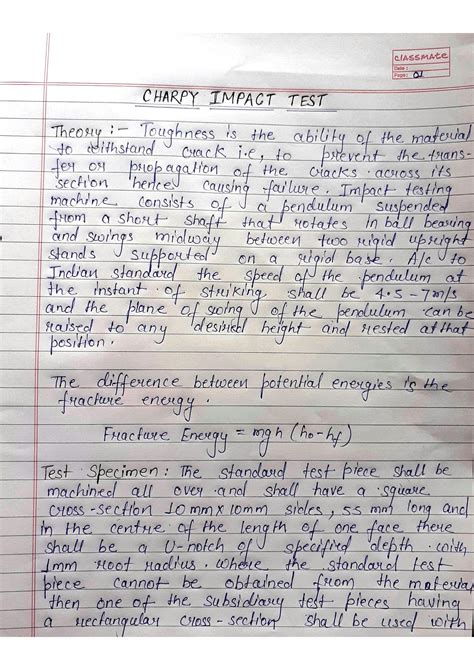 classmate
Date :
Page : 01
CHARPY IMPACT TEST
Theory :- Toughness is the ability of the material
to withstand crack i.e, to prevent the trans-
fer or propagation of the cracks across its
section hence causing failure. Impact testing
machine consists of a pendulum suspended
from a short shaft that rotates in ball bearing
and swings midway between two rigid upright
stands supported on a rigid base. A/c to
Indian standard the speed of the pendulum at
the instant of striking shall be 4.5 - 7m/s
and the plane of swing of the pendulum can be
raised to any desired height and rested at that
position.
The difference between potential energies is the
fracture energy.
Fracture Energy = mgh (ho-hf)
Test Specimen : The standard test piece shall be
machined all over and shall have a square
cross-section 10mm x 10mm sides, 55 mm long and
in the centre of the length of one face there
shall be a U-notch of specified depth with
1mm root radius. Where the standard test
piece cannot be obtained from the material,
then one of the subsidiary test pieces having
a rectangular cross-section shall be used with